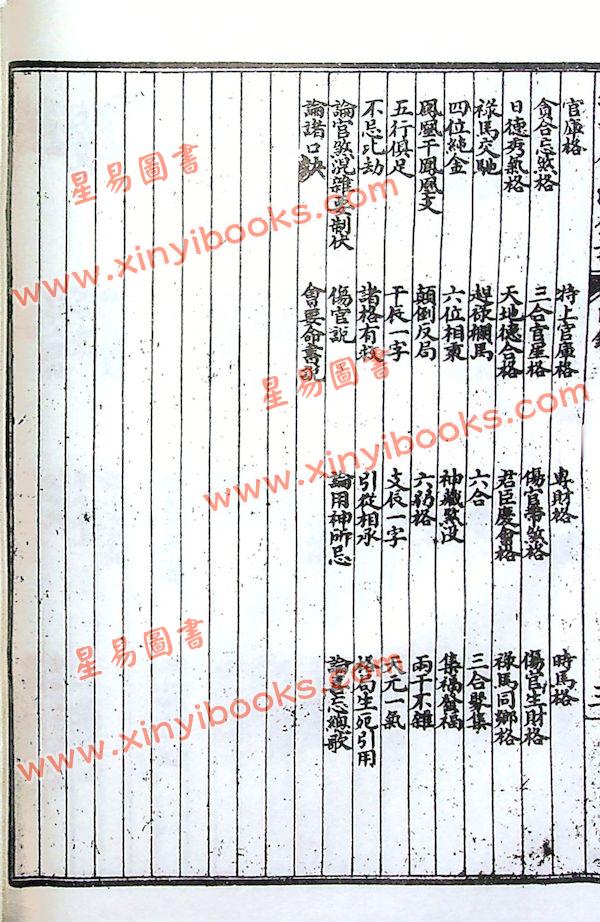 官庫格 特上官庫格 專財格 時馬格
貪合忘煞格 三合官星格 傷官帶煞格 傷官生財格
日德秀氣格 天地德合格 君臣慶會格 祿馬同鄉格
祿馬交馳 趕祿攔馬 六合 三合聚集
四位純金 六位相乘 神藏煞沒 集福發福
鳳凰干鳳凰支 顛倒反局 六弱格 兩干不雜
五行俱足 干辰一字 支辰一字 天元一氣
不忌比劫 諸格有救 引從相承 生死引用
論官煞混雜要制伏 傷官說 論用神所忌 論喜忌總歌
論諸口訣 會要命書說
星易圖書
www.xinyibooks.com
星易圖書
www.xinyibooks.com
星易圖書
www.xinyibooks.com